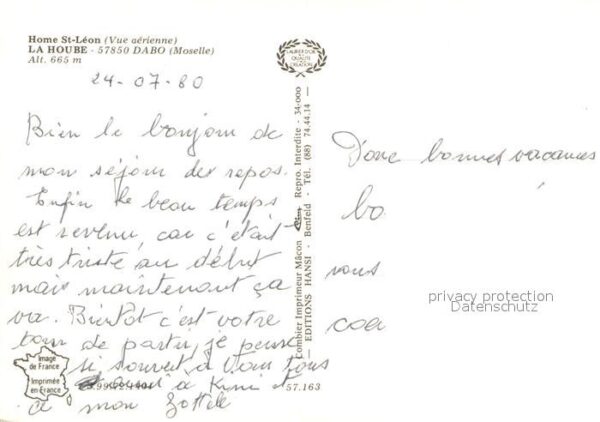 Home St-Léon (Vue aérienne)
LA HOUBE - 57850 DABO (Moselle)
Alt. 665 m
24-07-80
Bien le bonjour de
mon séjour de repos.
Enfin le beau temps
est revenu, car c'était
très triste au début
mais maintenant ça
va. Bientôt c'est votre
tour de partir, je pense
si souvent à vous tous
et aussi à Kimi et
à mon
Donc bonnes vacances
bo
vous
coa
LAURIER D'OR
DE LA
QUALITÉ
CRÉATION
Combier Imprimeur Mâcon Repro. Interdite - 34-000
— EDITIONS HANSI - Benfeld - Tél. (88) 74.44.14 —
privacy protection
Datenschutz
Image
de France
Imprimée
en France
57.163